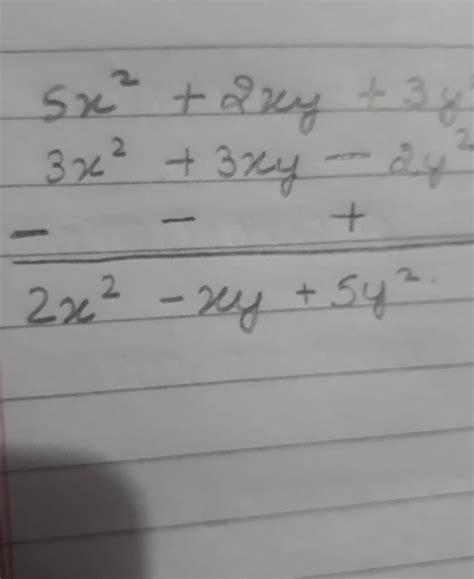 5x² + 2xy + 3y²
3x² + 3xy - 2y²
- - +
2x² - xy + 5y².